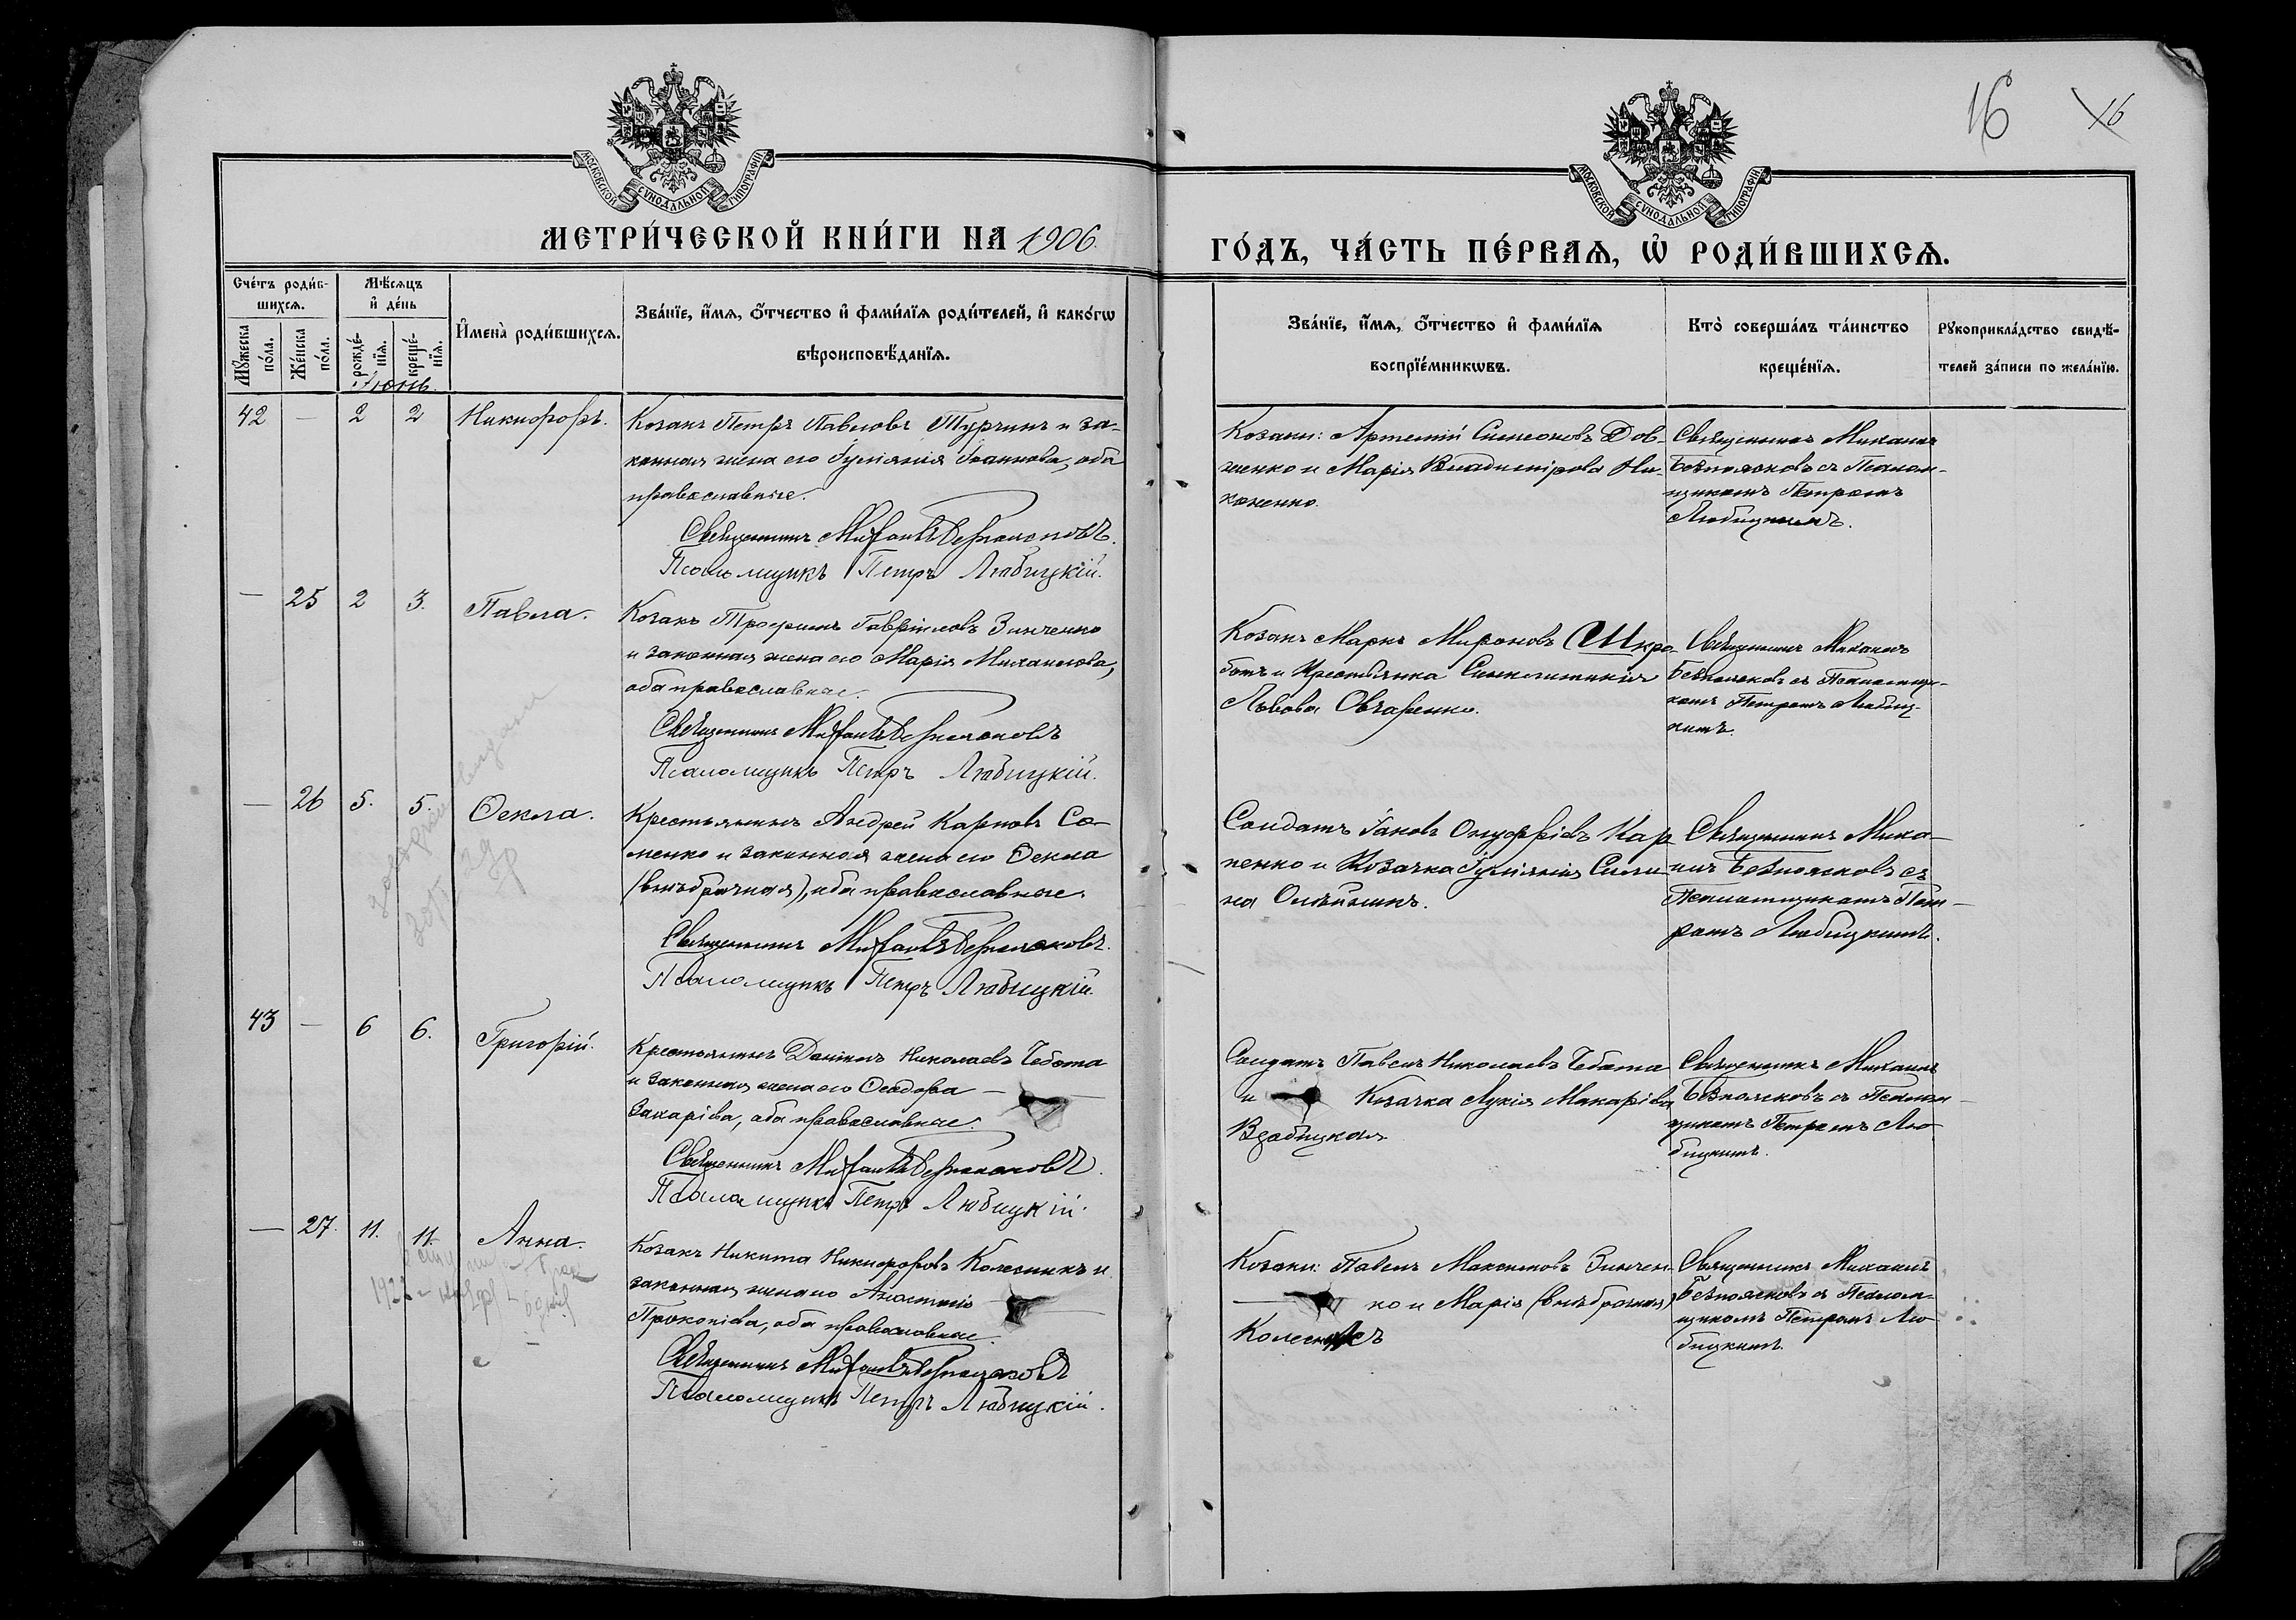 16 16
МОСКОВСКОЙ СѴНОДАЛЬНОЙ ТИПОГРАФІИ
МОСКОВСКОЙ СѴНОДАЛЬНОЙ ТИПОГРАФІИ
МЕТРИ́ЧЕСКОЙ КНИ́ГИ НА 1906
ГО́ДЪ, ЧА́СТЬ ПЕ́РВАѦ, Ѡ РОДИ́ВШИХСѦ.
Сче́тъ роди́в-
шихсѧ.
Мꙋжеска по́ла.
Же́нска по́ла.
Мѣ́сѧцъ
и҆ де́нь
рожде́-
нїѧ.
креще́-
нїѧ.
Іюнь.
И҆мена̀ роди́вшихсѧ.
Зва́нїе, и҆́мѧ, ѻ҆́тчество и҆ фами́лїѧ роди́телей, и҆ како́гѡ
вѣроисповѣ́данїѧ.
Зва́нїе, и҆́мѧ, ѻ҆́тчество и҆ фами́лїѧ
воспрїе́мникѡвъ.
Кто̀ соверша́лъ та́инство
креще́нїѧ.
Рꙋкоприкла́дство свидѣ́-
телей за́писи по жела́нїю.
42 — 2 2 Никифоръ.
Козакъ Петръ Павловъ Турчинъ и за-
конная жена его Іуліанія Іоаннова, оба
православные.
Священникъ Михаилъ Безпоясковъ.
Псаломщикъ Петръ Любицкій.
Козаки: Артемій Симеоновъ Дов-
женко и Марія Владимірова Ни-
коненко.
Священникъ Михаилъ
Безпоясковъ съ Псалом-
щикомъ Петромъ
Любицкимъ.
— 25 2 3. Павла.
Козакъ Трофимъ Гавріиловъ Зинченко
и законная жена его Марія Михаилова,
оба православные.
Священникъ Михаилъ Безпоясковъ
Псаломщикъ Петръ Любицкій.
Козакъ Маркъ Мироновъ Шкро-
ботъ и Крестьянка Синклитикія
Львова Овчаренко.
Священникъ Михаилъ
Безпоясковъ съ Псаломщи-
комъ Петромъ Любиц-
кимъ.
— 26 5. 5. Ѳекла.
Крестьянинъ Андрей Карповъ Со-
менко и законная жена его Ѳекла
(внѣбрачная), оба православные.
Священникъ Михаилъ Безпоясковъ.
Псаломщикъ Петръ Любицкій.
Солдатъ Іаковъ Онуфріевъ Кар-
пенко и Козачка Іуліанія Сили-
на Олѣйникъ.
Священникъ Миха-
илъ Безпоясковъ съ
Псаломщикомъ Пет-
ромъ Любицкимъ.
43 — 6 6. Григорій.
Крестьянинъ Даніилъ Николаевъ Чебота
и законная жена его Ѳеодора —
Захаріева, оба православные.
Священникъ Михаилъ Безпоясковъ.
Псаломщикъ Петръ Любицкій.
Солдатъ Павелъ Николаевъ Чебота
и — Козачка Лукія Макаріева
Священникъ Михаилъ
Безпоясковъ съ Псалом-
щикомъ Петромъ Лю-
бицкимъ.
— 27. 11. 11. Анна.
Козакъ Никита Никифоровъ Колесникъ и
законная жена его Анастасія —
Прокопіева, оба православные.
Священникъ Михаилъ Безпоясковъ
Псаломщикъ Петръ Любицкій.
Козаки: Павелъ Максимовъ Зинчен-
— ко и Марія (внѣбрачная)
Колесникъ
Священникъ Михаилъ
Безпоясковъ съ Псалом-
щикомъ Петромъ Лю-
бицкимъ.